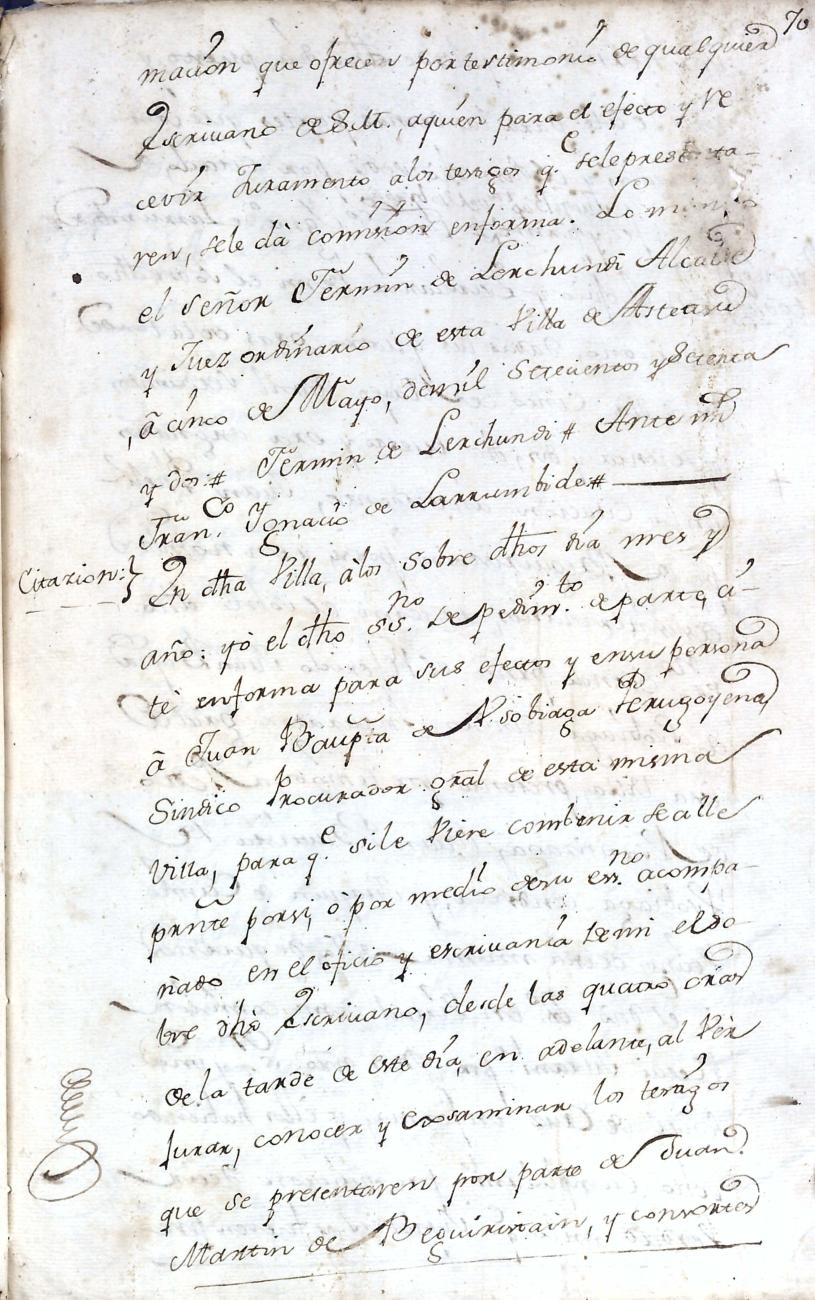 70
macion que ofrecen por testimonio de qualquier
Escrivano de S.M., aquien para el efecto y re
cevir Juramento alos testigos q.e sele presenta-
ren, sele dà comision enforma. Lo mando
el señor Fermin de Lerchundi Alcalde
y Juez ordinario de esta Villa de Asteasu
, â cinco de Mayo, demil Setecientos y Setenta
y dos # Fermin de Lerchundi # Ante mi
Fran.co Ygnacio de Larrumbide #
Citacion:} En dha Villa, àlos sobre dhos dia mes y
año: yo el dho ss.no de pedim.to de parte, ci-
tè enforma para sus efectos y ensu persona
â Juan Baupta de Ysobiaga Perugoyena
Sindico Procurador gral de esta misma
Villa, para q.e sile Viere combenir se alle
prnte porsi, ò por medio desu ess.no acompa-
ñado en el oficio y escrivania demi elso-
bre dho Escrivano, desde las quatro oras
dela tarde de este dia, en adelante, al Vèr
Jurar, conocer y exsaminar los testigos
que se presentaren por parte de Juan
Martin de Beguiristain, y consortes